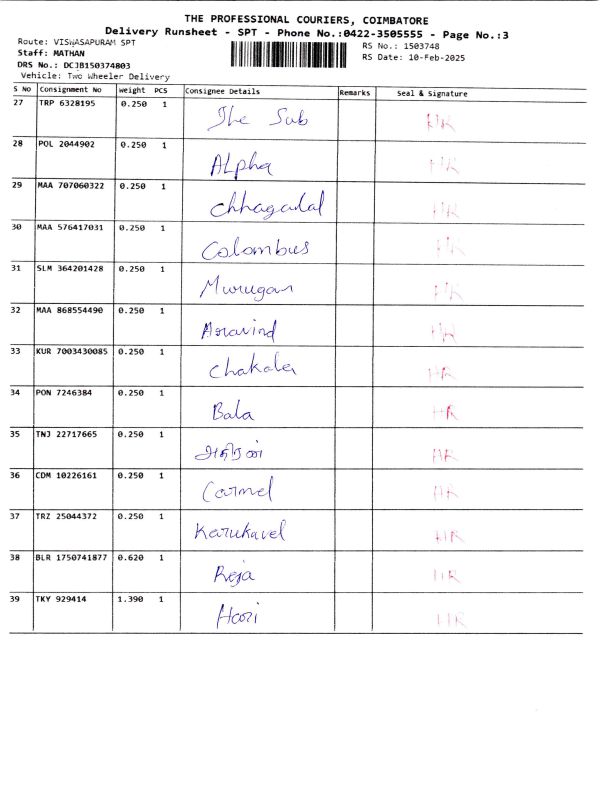 THE PROFESSIONAL COURIERS, COIMBATORE
Delivery Runsheet - SPT - Phone No.:0422-3505555 - Page No.:3
Route: VISWASAPURAM SPT
RS No.: 1503748
Staff: MATHAN
RS Date: 10-Feb-2025
DRS No.: DCJB150374803
Vehicle: Two Wheeler Delivery
S No Consignment No Weight PCS Consignee Details Remarks Seal & Signature
27 TRP 6328195 0.250 1 The Sub HR
28 POL 2044902 0.250 1 Alpha HR
29 MAA 707060322 0.250 1 Chhaganlal HR
30 MAA 576417031 0.250 1 Colombus HR
31 SLM 364201428 0.250 1 Murugan HR
32 MAA 868554490 0.250 1 Aravind HR
33 KUR 7003430085 0.250 1 HR
34 PON 7246384 0.250 1 Bala HR
35 TNJ 22717665 0.250 1 HR
36 CDM 10226161 0.250 1 Carmel HR
37 TRZ 25044372 0.250 1 Karukavel HR
38 BLR 1750741877 0.620 1 Reja HR
39 TKY 929414 1.390 1 Hari HR